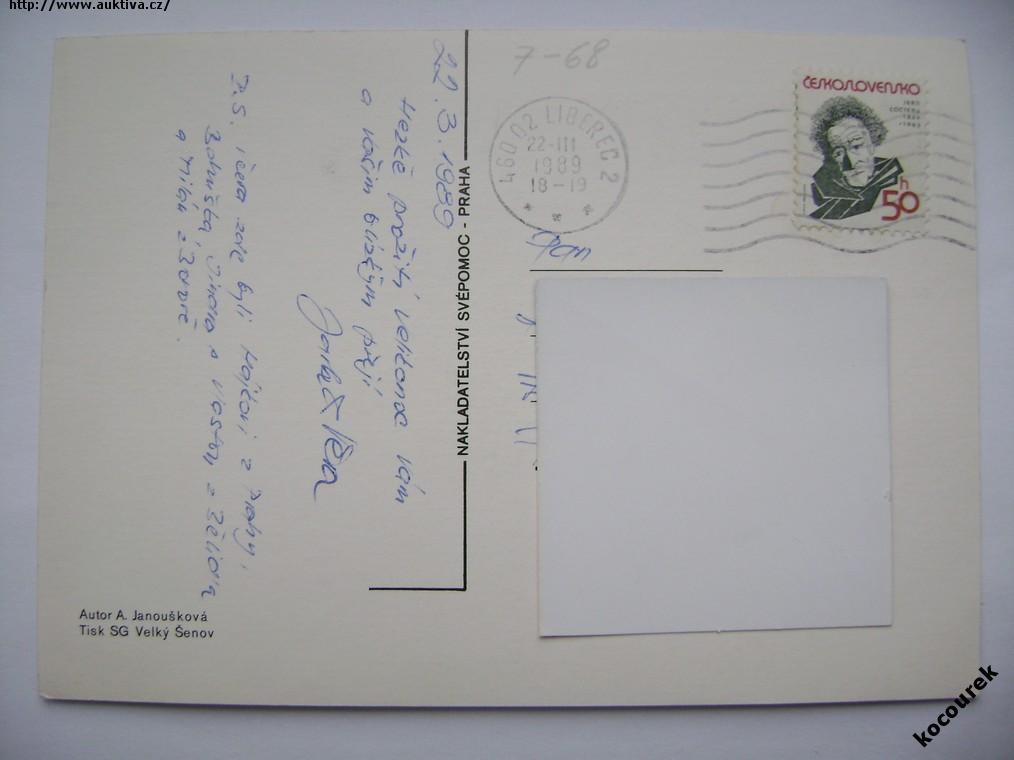 http://www.auktiva.cz/
7-68
ČESKOSLOVENSKO
1889
COCTEAU
1963
50 h
460 02 LIBEREC 2
22-III
1989
18-19
pan
NAKLADATELSTVÍ SVÉPOMOC - PRAHA
22.3.1989
Hezké prožití velikonoc vám
a vašim blízkým přejí
P.S. včera zde byli z Prahy,
Bohuška, a Vlasta
a
Autor A. Janoušková
Tisk SG Velký Šenov
kocourek